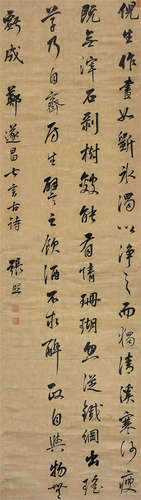 倪生作畫如斷冰濁以淨之而獨清溪寒沙瘦
既無滓石剥樹皴能有情珊瑚忽從鐵網出瑤
草乃自齋房生譬之飲酒不求醉政自與物無
虧成 鄭遂昌七言古詩 張照